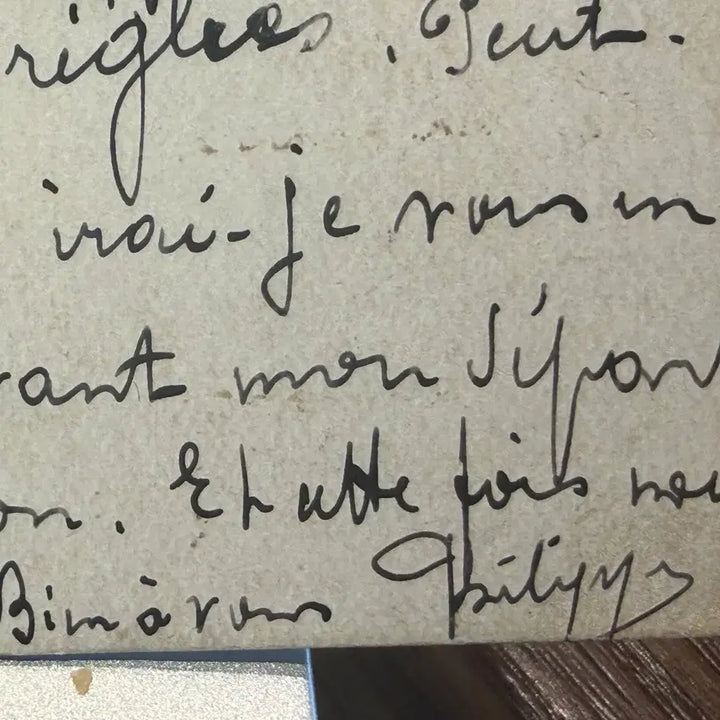 réglées. Peut-
irai-je vous en
vant mon dépar
on. Et cette fois nou
Bien à vous Philippe